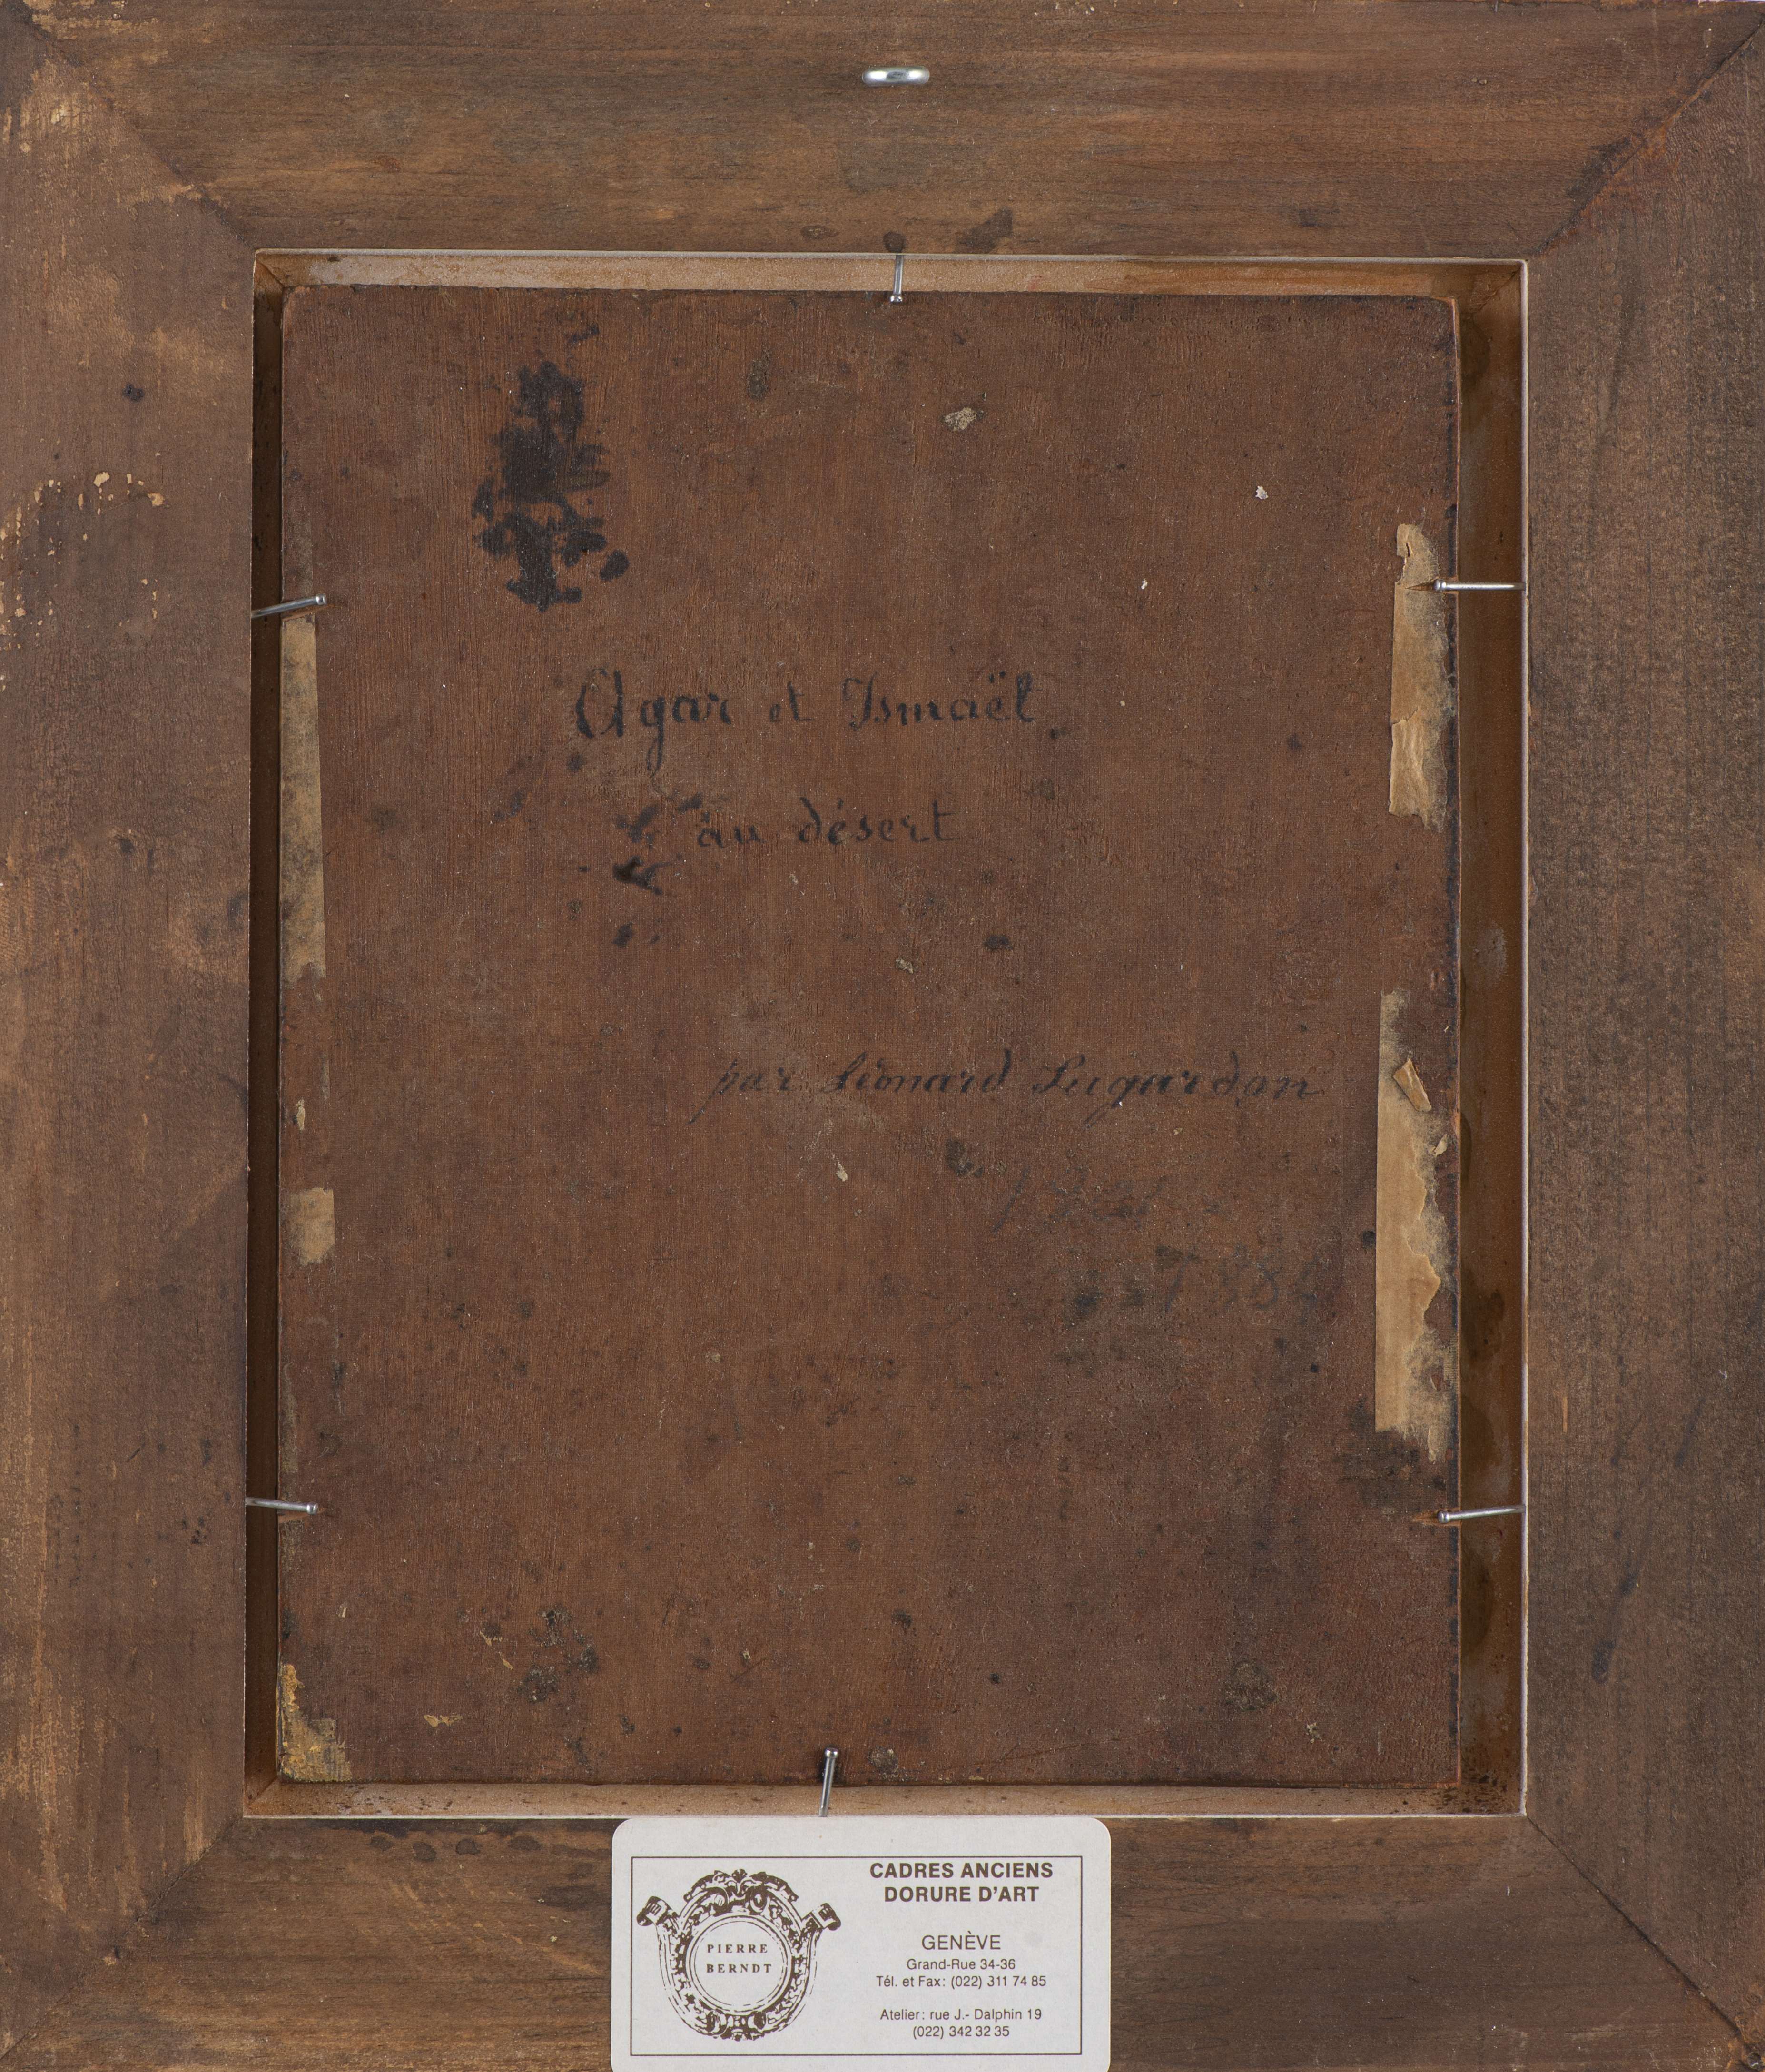 Agar et Ismaël
au désert
par Léonard Lugardon
PIERRE
BERNDT
CADRES ANCIENS
DORURE D'ART
GENÈVE
Grand-Rue 34-36
Tél. et Fax: (022) 311 74 85
Atelier: rue J.- Dalphin 19
(022) 342 32 35